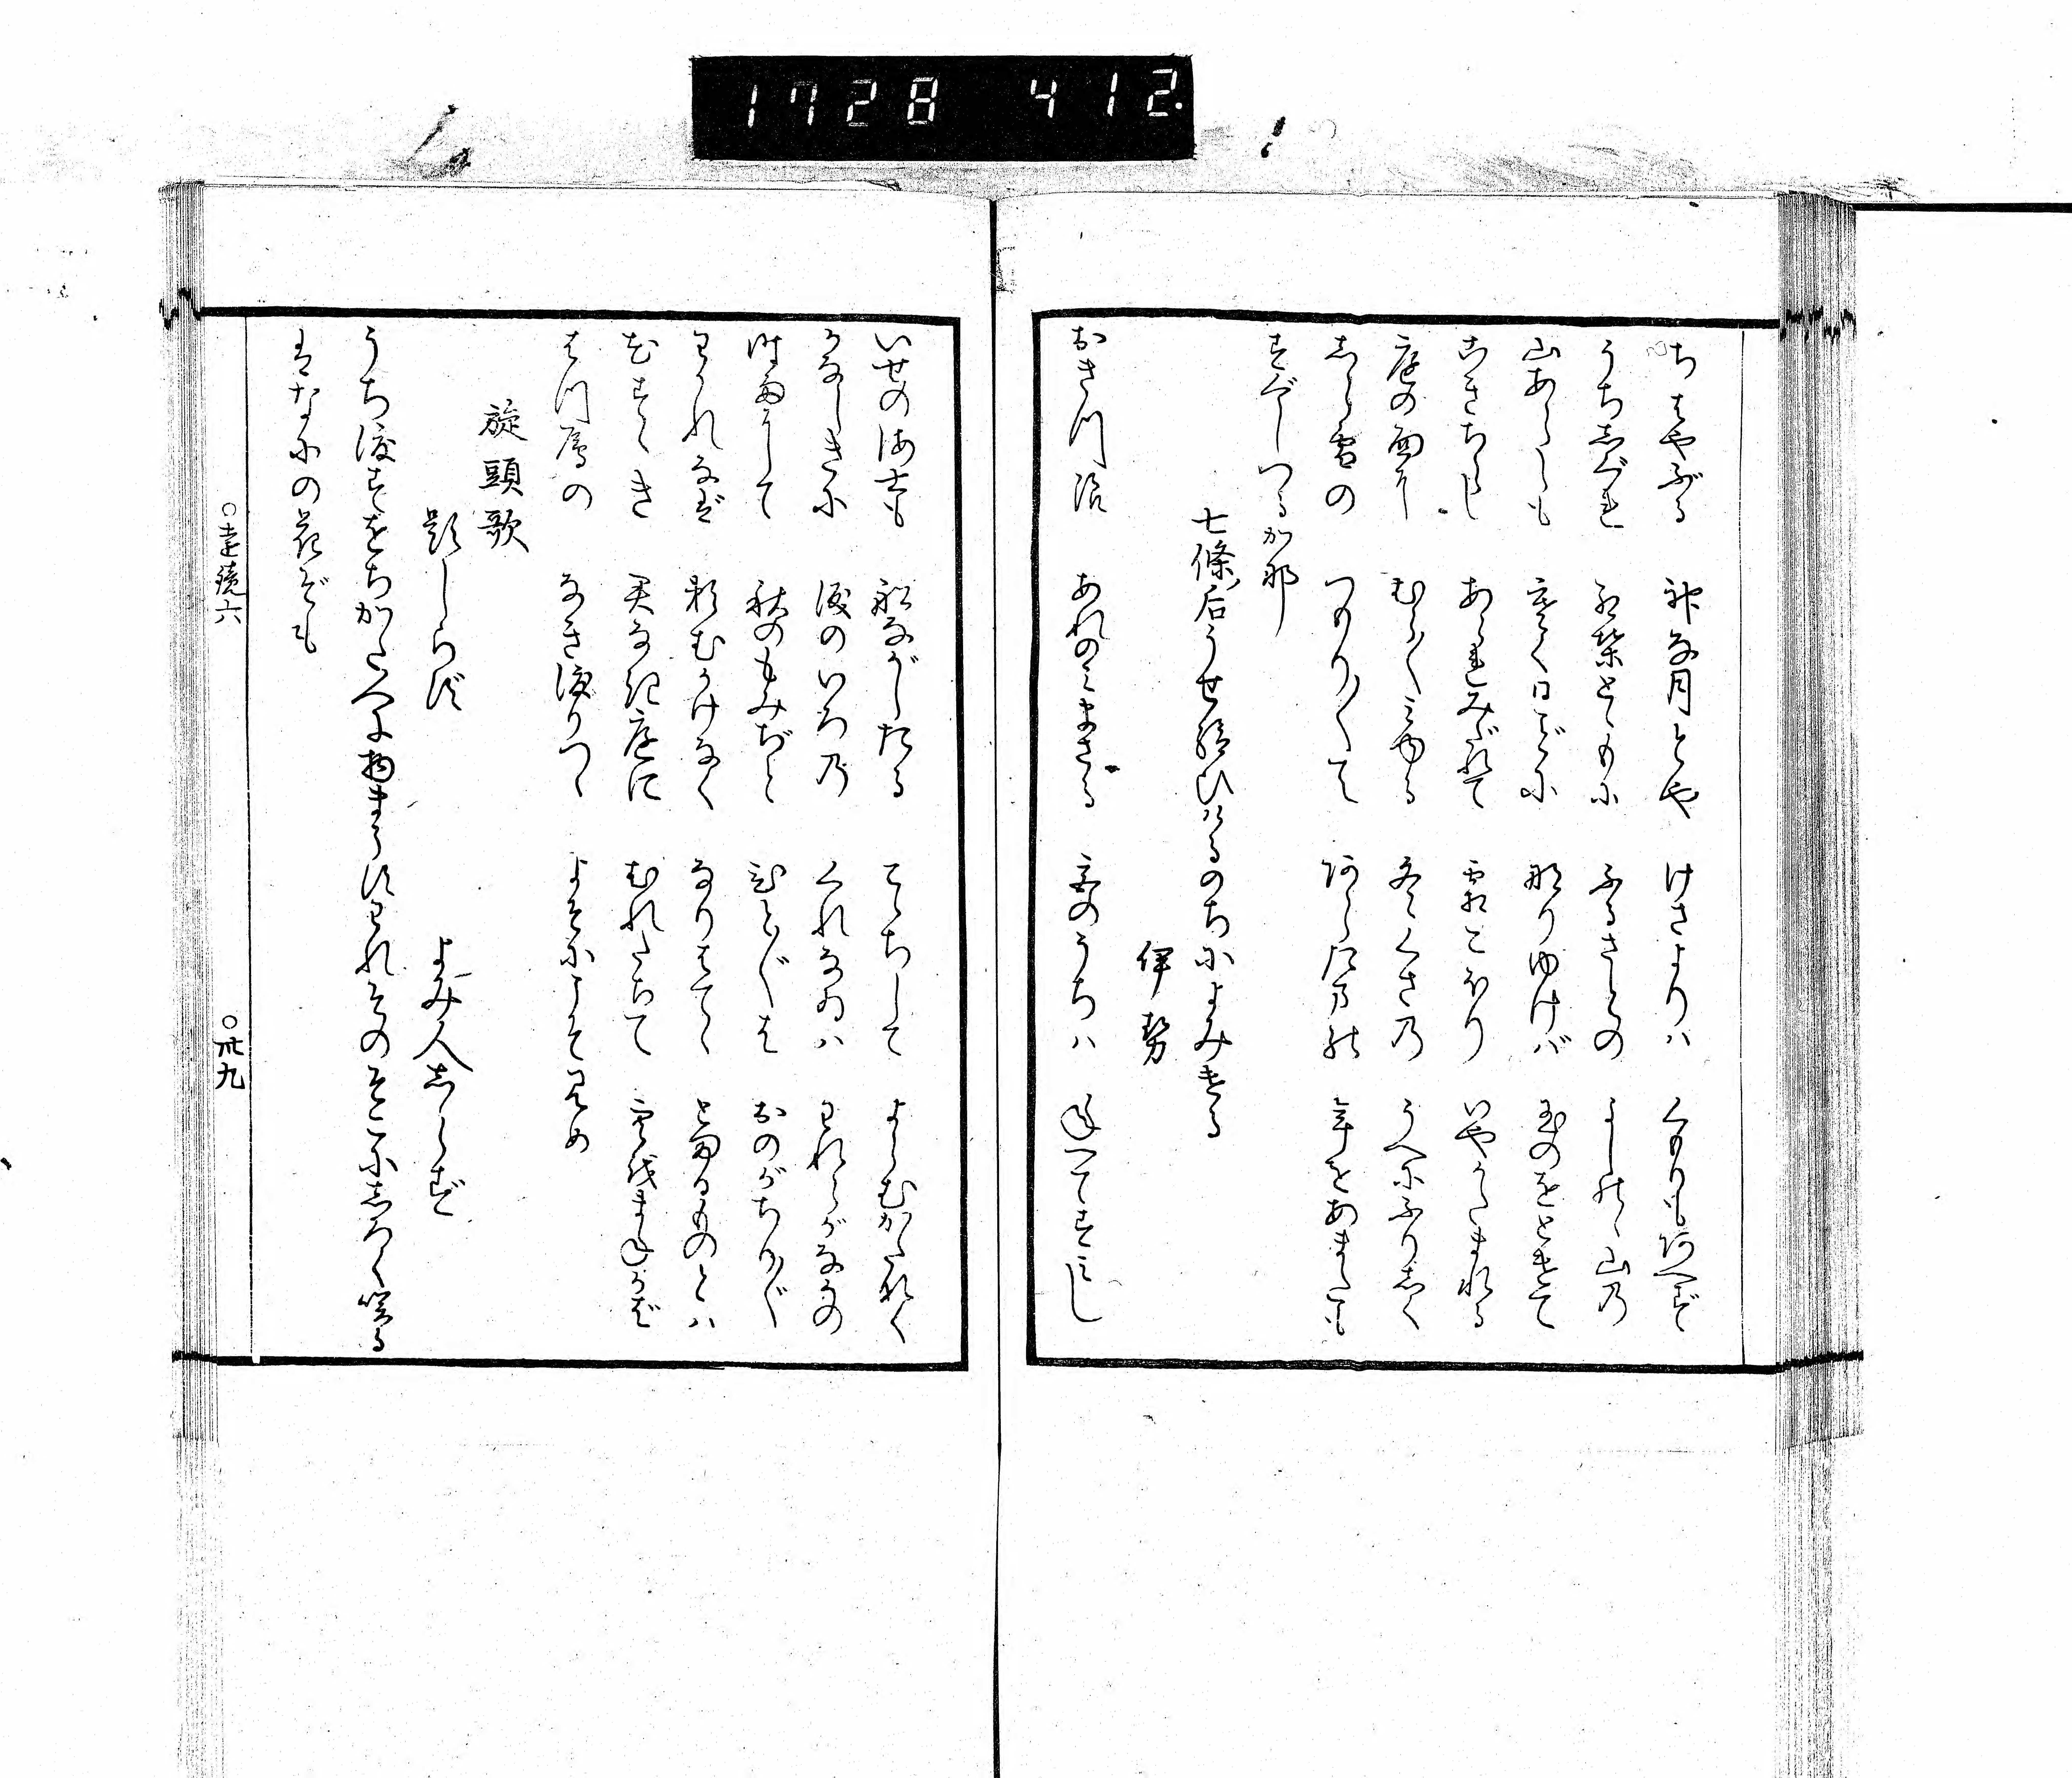 1728 412.
ちはやぶる 神な月とや けさよりハ くもりもあへず
うちしぐれ 紅葉とゝもに ふるさとの よしのゝ山乃
山あらしも 寒く日ごとに 成りゆけバ 玉のをときて
こきちらし あられみだれて 霜こほり いやかたまれる
庭の面に むら〳〵みゆる 冬くさ乃 うへにふりしく
しら雪の つもり〳〵て あら玉乃 年をあまたも
すぐしつるか那
七條后うせ給ひけるのちによみける
伊勢
おきつ浪 あれのみまさる 宮のうちハ 年へてすみし
いせの海士も 舩ながしたる こゝちして よらむかたなく
かなしきに 涙のいろ乃 くれなゐハ われらがなかの
時雨にて 秋のもみぢと 人〴〵は おのがちり〴〵
わかれなば 頼むかけなく なりはてゝ とまるものとハ
花すゝき 君なき庭に むれたちて 空をまねかば
はつ鴈の なき渡りつゝ よそにこそみめ
旋頭歌
題しらず
よみ人しらず
うち渡すをちかた人に物まうすわれそのそこにしろく咲る
はなにの花ぞも
○遠鏡六 ○卅九